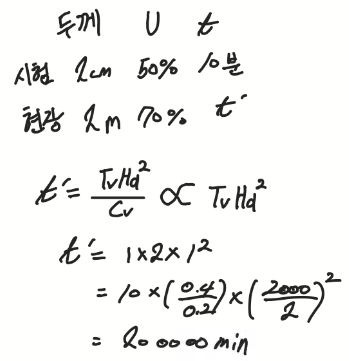 두께 U t
시험 2cm 50% 10분
현장 2m 70% t'
t' = TvHd² / Cv ∝ TvHd²
t' = 1×2×1²
= 10 × (0.4/0.2) × (2000/2)²
= 200000 min